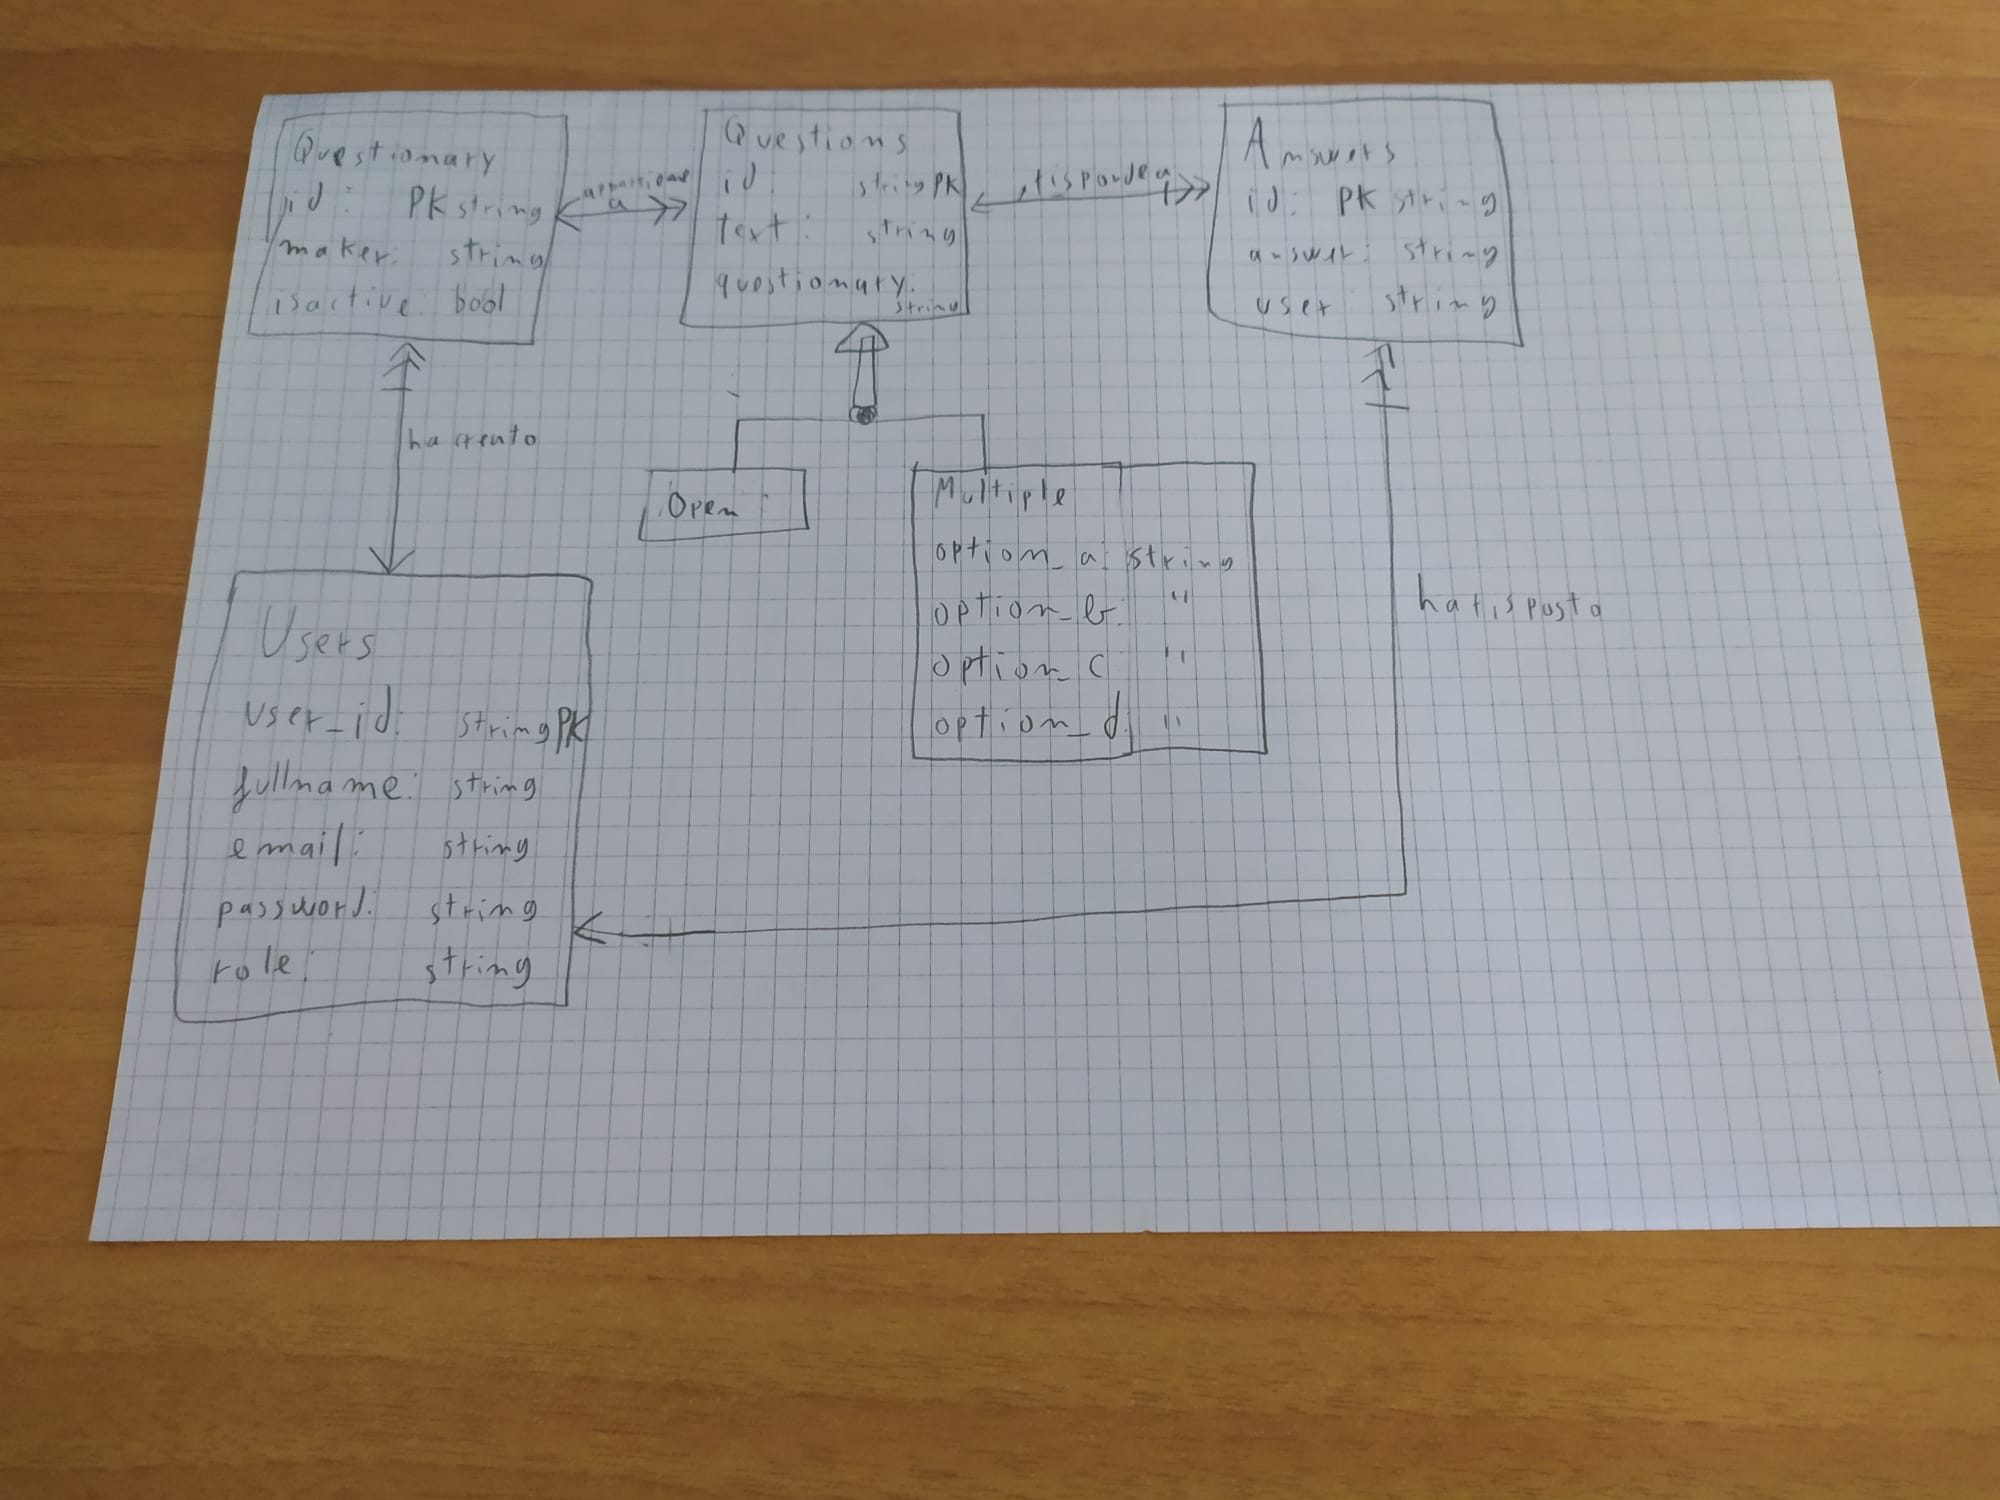 Questionary
id: PK string
maker: string
isactive: bool
appartiene
a
Questions
id: string PK
text: string
questionary:
string
risponde a
Answers
id: PK string
answer: string
user string
ha creato
Open
Multiple
option_a: string
option_b: "
option_c "
option_d: "
ha risposto
Users
user_id: string PK
fullname: string
email: string
password: string
role: string